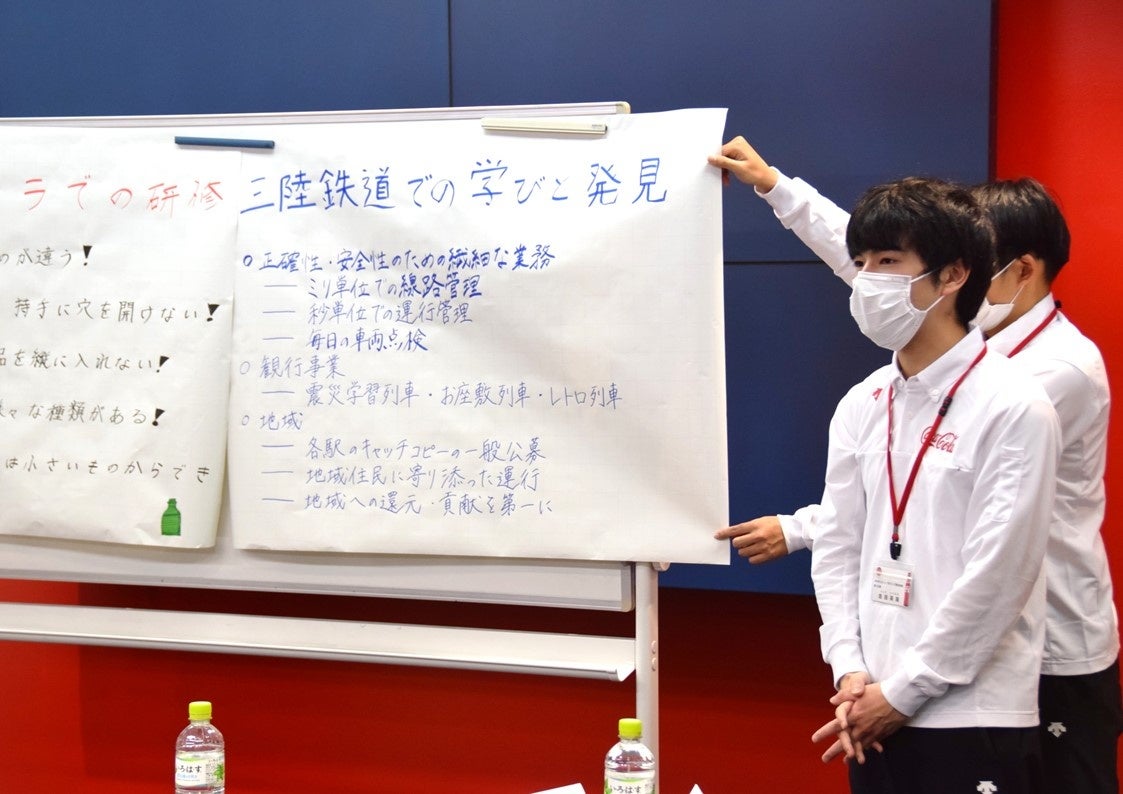 ラでの研修
のが違う!
持手に穴を開けない!
品を線に入れない!
々な種類がある!
は小さいものからでき
三陸鉄道での学びと発見
○ 正確性・安全性のための繊細な業務
― ミリ単位での線路管理
― 秒単位での運行管理
― 毎日の車両点検
○ 観行事業
― 震災学習列車・お座敷列車・レトロ列車
○ 地域
― 各駅のキャッチコピーの一般公募
― 地域住民に寄り添った運行
― 地域への還元・貢献を第一に
Coca-Cola
いろはす
いろはす